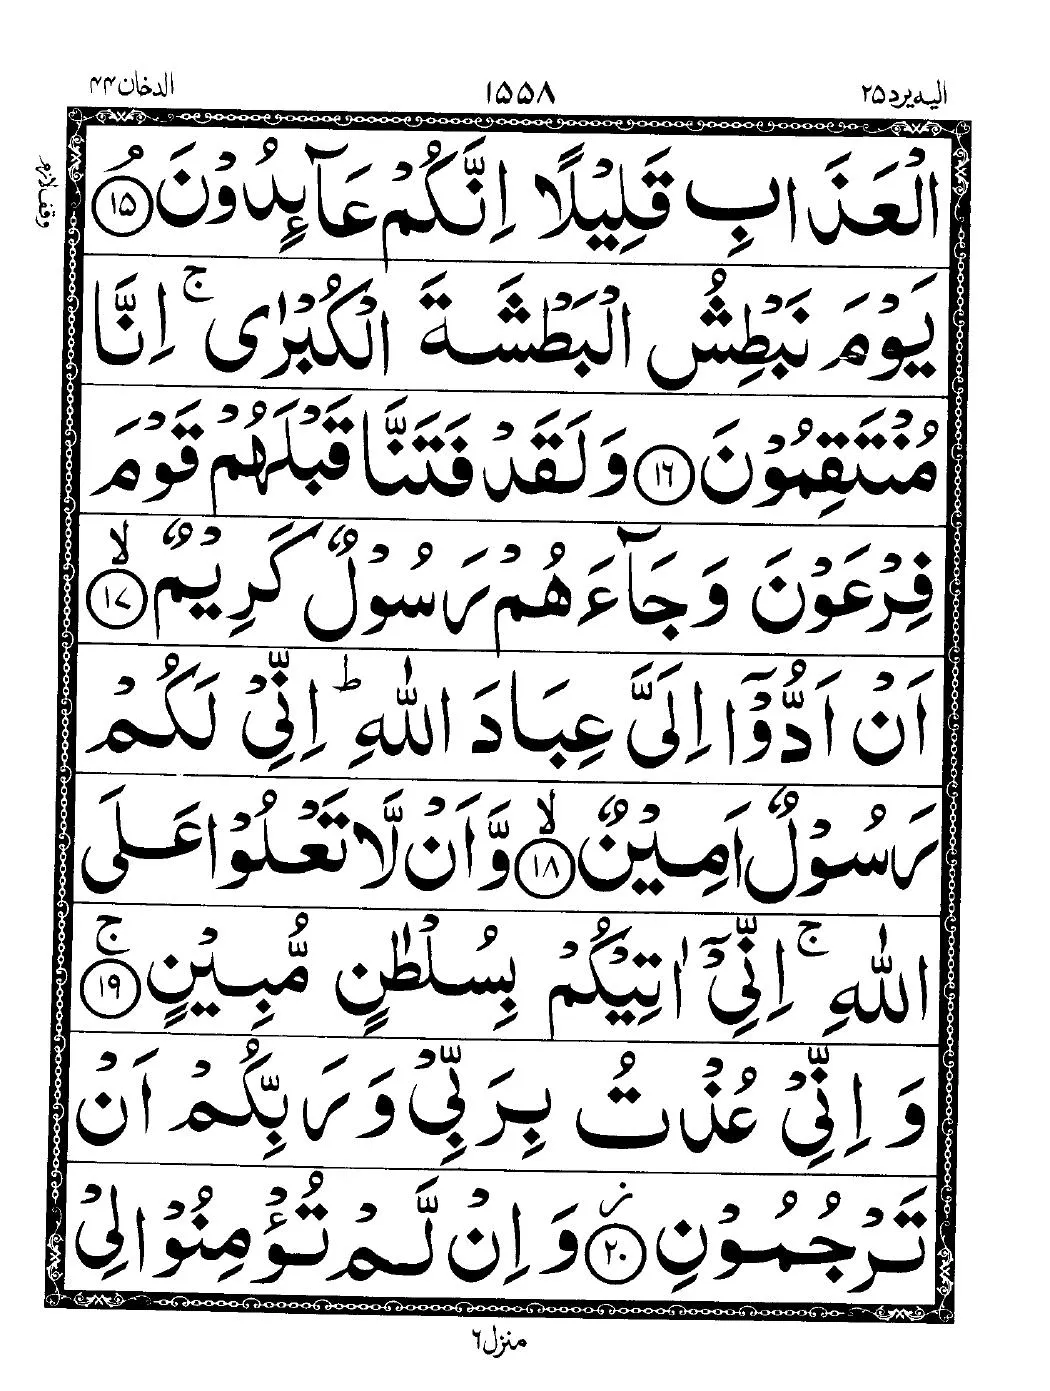 الدخان ۴۴ ۱۵۵۸ الیه یرد ۲۵
وقف لازم
الْعَذَابِ قَلِيْلًا اِنَّكُمْ عَآىِٕدُوْنَ ۘ ۱۵
يَوْمَ نَبْطِشُ الْبَطْشَةَ الْكُبْرٰى ۚ اِنَّا
مُنْتَقِمُوْنَ ۱۶ وَلَقَدْ فَتَنَّا قَبْلَهُمْ قَوْمَ
فِرْعَوْنَ وَجَآءَهُمْ رَسُوْلٌ كَرِيْمٌ ۙ ۱۷
اَنْ اَدُّوْٓا اِلَيَّ عِبَادَ اللّٰهِ ؕ اِنِّيْ لَكُمْ
رَسُوْلٌ اَمِيْنٌ ۙ ۱۸ وَّاَنْ لَّا تَعْلُوْا عَلَى
اللّٰهِ ۚ اِنِّيْٓ اٰتِيْكُمْ بِسُلْطٰنٍ مُّبِيْنٍ ۚ ۱۹
وَاِنِّيْ عُذْتُ بِرَبِّيْ وَرَبِّكُمْ اَنْ
تَرْجُمُوْنِ ؗ ۲۰ وَاِنْ لَّمْ تُؤْمِنُوْا لِيْ
منزل ۶